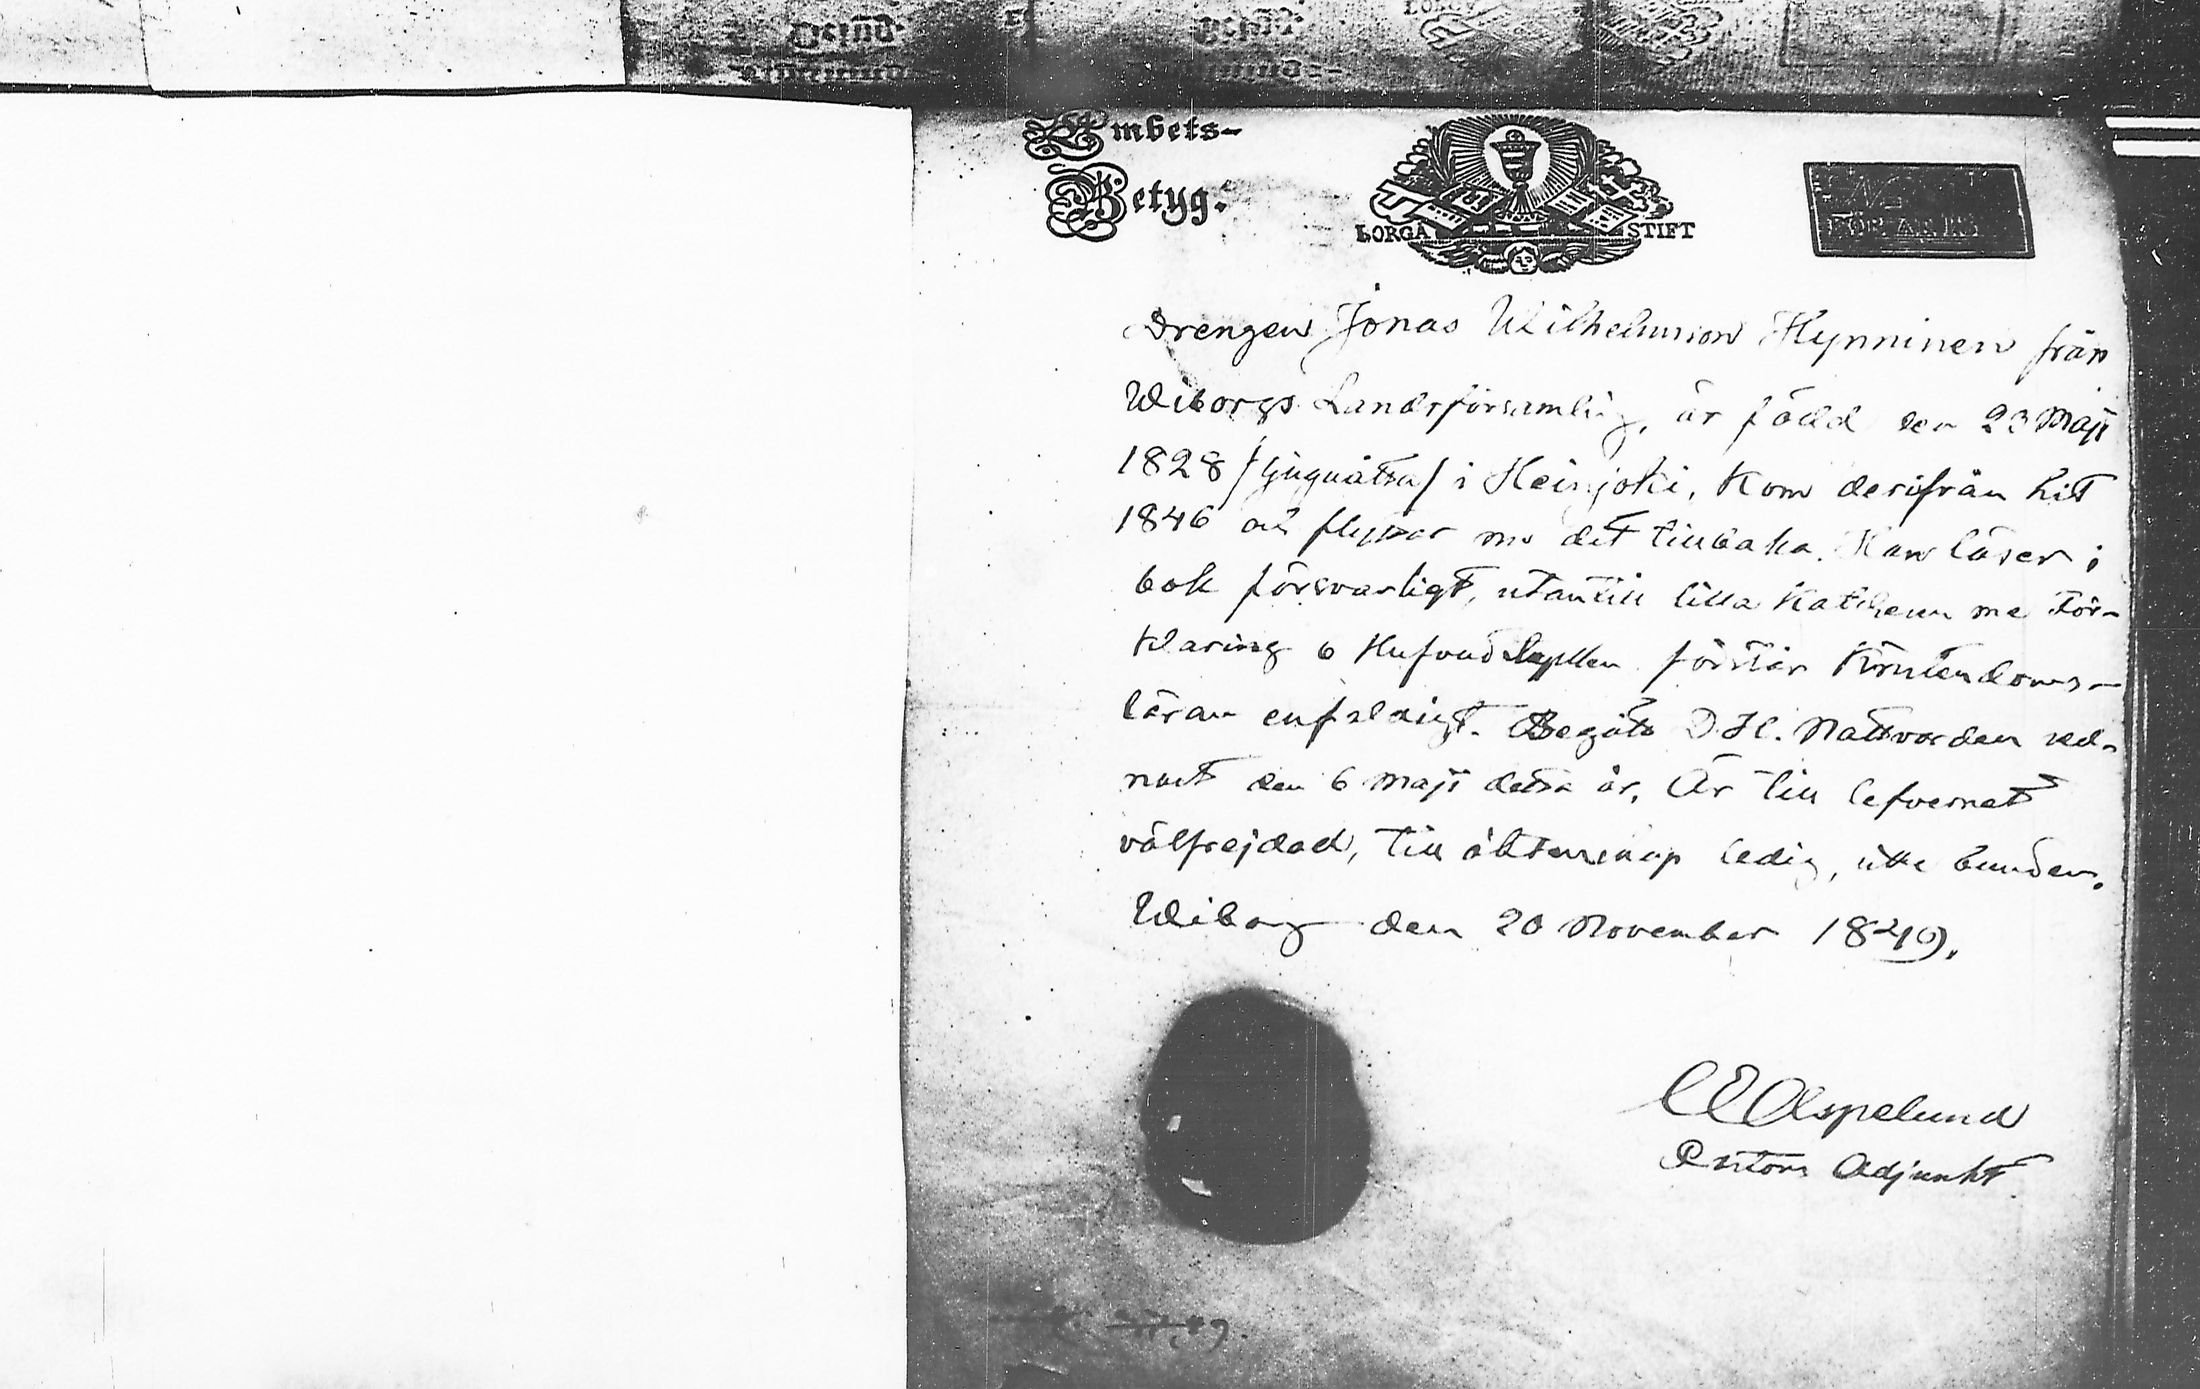 Embets-
Betyg.
BORGÅ STIFT
FÖR ÅR
Drengen Jonas Wilhelmsson Hynninen från
Wiborgs Landsförsamling, är född den 23 Maji
1828 /tjuguåtta/ i Heinjoki, kom derifrån hit
1846 och flyttar nu dit tillbaka. Han läser i
bok försvarligt, utantill lilla Katchesen me För-
klaring o Hufvudstycken förstår Kristendoms-
läran enfaldigt. Begått D. H. Nattvarden sed-
nast den 6 Maji detta år. Är till lefvernet
välfrejdad, till äktenskap ledig, icke bunden.
Wiborg den 20 November 1849.
C E Aspelund
Pastors Adjunkt.